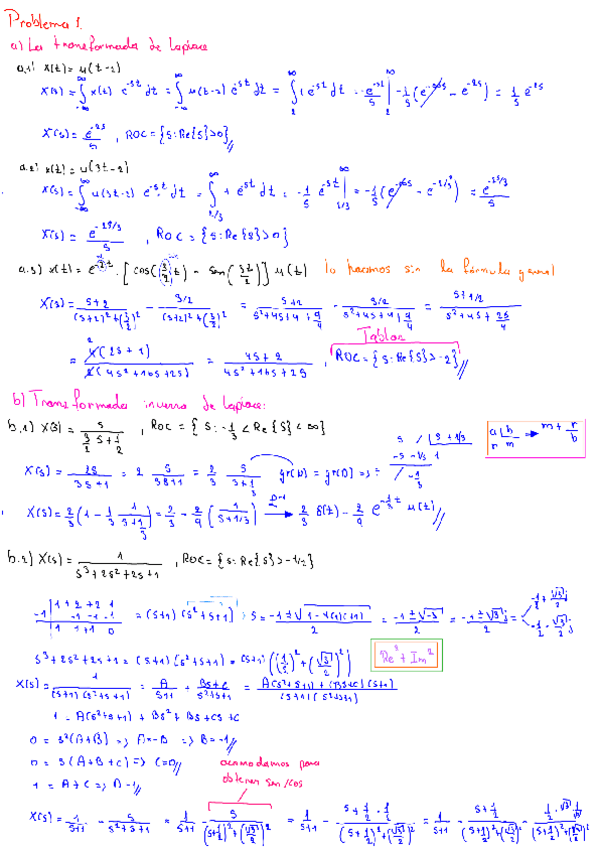 Problema 1.
a) La transformada de laplace
a.1) x(t) = u(t-2)
X(s) = ∫_{-∞}^{∞} x(t) e^{-st} dt = ∫_{-∞}^{∞} u(t-2) e^{-st} dt = ∫_{2}^{∞} 1 e^{-st} dt = -e^{-st}/s |_{2}^{∞} = -1/s (e^{-∞s} - e^{-2s}) = 1/s e^{-2s}
X(s) = e^{-2s}/s , ROC = {s: Re{s}>0}//
a.2) x(t) = u(3t-2)
X(s) = ∫_{-∞}^{∞} u(3t-2) e^{-st} dt = ∫_{2/3}^{∞} 1 e^{-st} dt = -1/s e^{-st} |_{2/3}^{∞} = -1/s (e^{-∞s} - e^{-2/3s}) = e^{-2s/3}/s
X(s) = e^{-2s/3}/s , ROC = {s: Re{s}>0}
a.3) x(t) = e^{-2t} · [cos(3/2 t) - sen(3t/2)] u(t) lo hacemos sin la fórmula general
X(s) = s+2/(s+2)²+(3/2)² - 3/2/(s+2)²+(3/2)² = s+2/s²+4s+4+9/4 - 3/2/s²+4s+4+9/4 = s+1/2/s²+4s+25/4
Tablas
= 2(2s+1)/(4s²+16s+25) = 4s+2/4s²+16s+25 , ROC = {s: Re{s}>-2}//
b) Transformada inversa de laplace:
b.1) X(s) = s/(3/2 s + 1/2) , ROC = {s: -1/3 < Re{s} < ∞}
a |b r m → m + r/b
X(s) = 2s/3s+1 = 2 s/3s+1 = 2/3 s/s+1/3 gr(N) = gr(D) =>
s |s+1/3
-s -1/3 1
/ -1/3
X(s) = 2/3 (1 - 1/3 1/s+1/3) = 2/3 - 2/9 (1/s+1/3) → 2/3 δ(t) - 2/9 e^{-1/3 t} u(t)//
b.2) X(s) = 1/s³+2s²+2s+1 , ROC = {s: Re{s}>-1/2}
1 +2 +2 1
-1 | -1 -1 -1
1 1 +1 0
= (s+1) (s²+s+1) => s = -1±√(1-4(1)(1))/2 = -1±√-3/2 = -1±√3j/2 = -1/2 + √3/2 j
-1/2 - √3/2 j
s³+2s²+2s+1 = (s+1) (s²+s+1) = (s+1) ((1/2)²+(√3/2)²)
Re²+Im²
X(s) = 1/(s+1)(s²+s+1) = A/s+1 + Bs+C/s²+s+1 = A(s²+s+1) + (Bs+C)(s+1)/(s+1)(s²+s+1)
1 = A(s²+s+1) + Bs² + Bs + Cs + C
0 = s²(A+B) => A=-B => B=-1//
0 = s(A+B+C) => C=0//
1 = A+C => A=1//
acomodamos para
obtener sin/cos
X(s) = 1/s+1 - s/s²+s+1 = 1/s+1 - s/(s+1/2)²+(√3/2)² = 1/s+1 - s+1/2-1/2/(s+1/2)²+(√3/2)² = 1/s+1 - s+1/2/(s+1/2)²+(√3/2)²